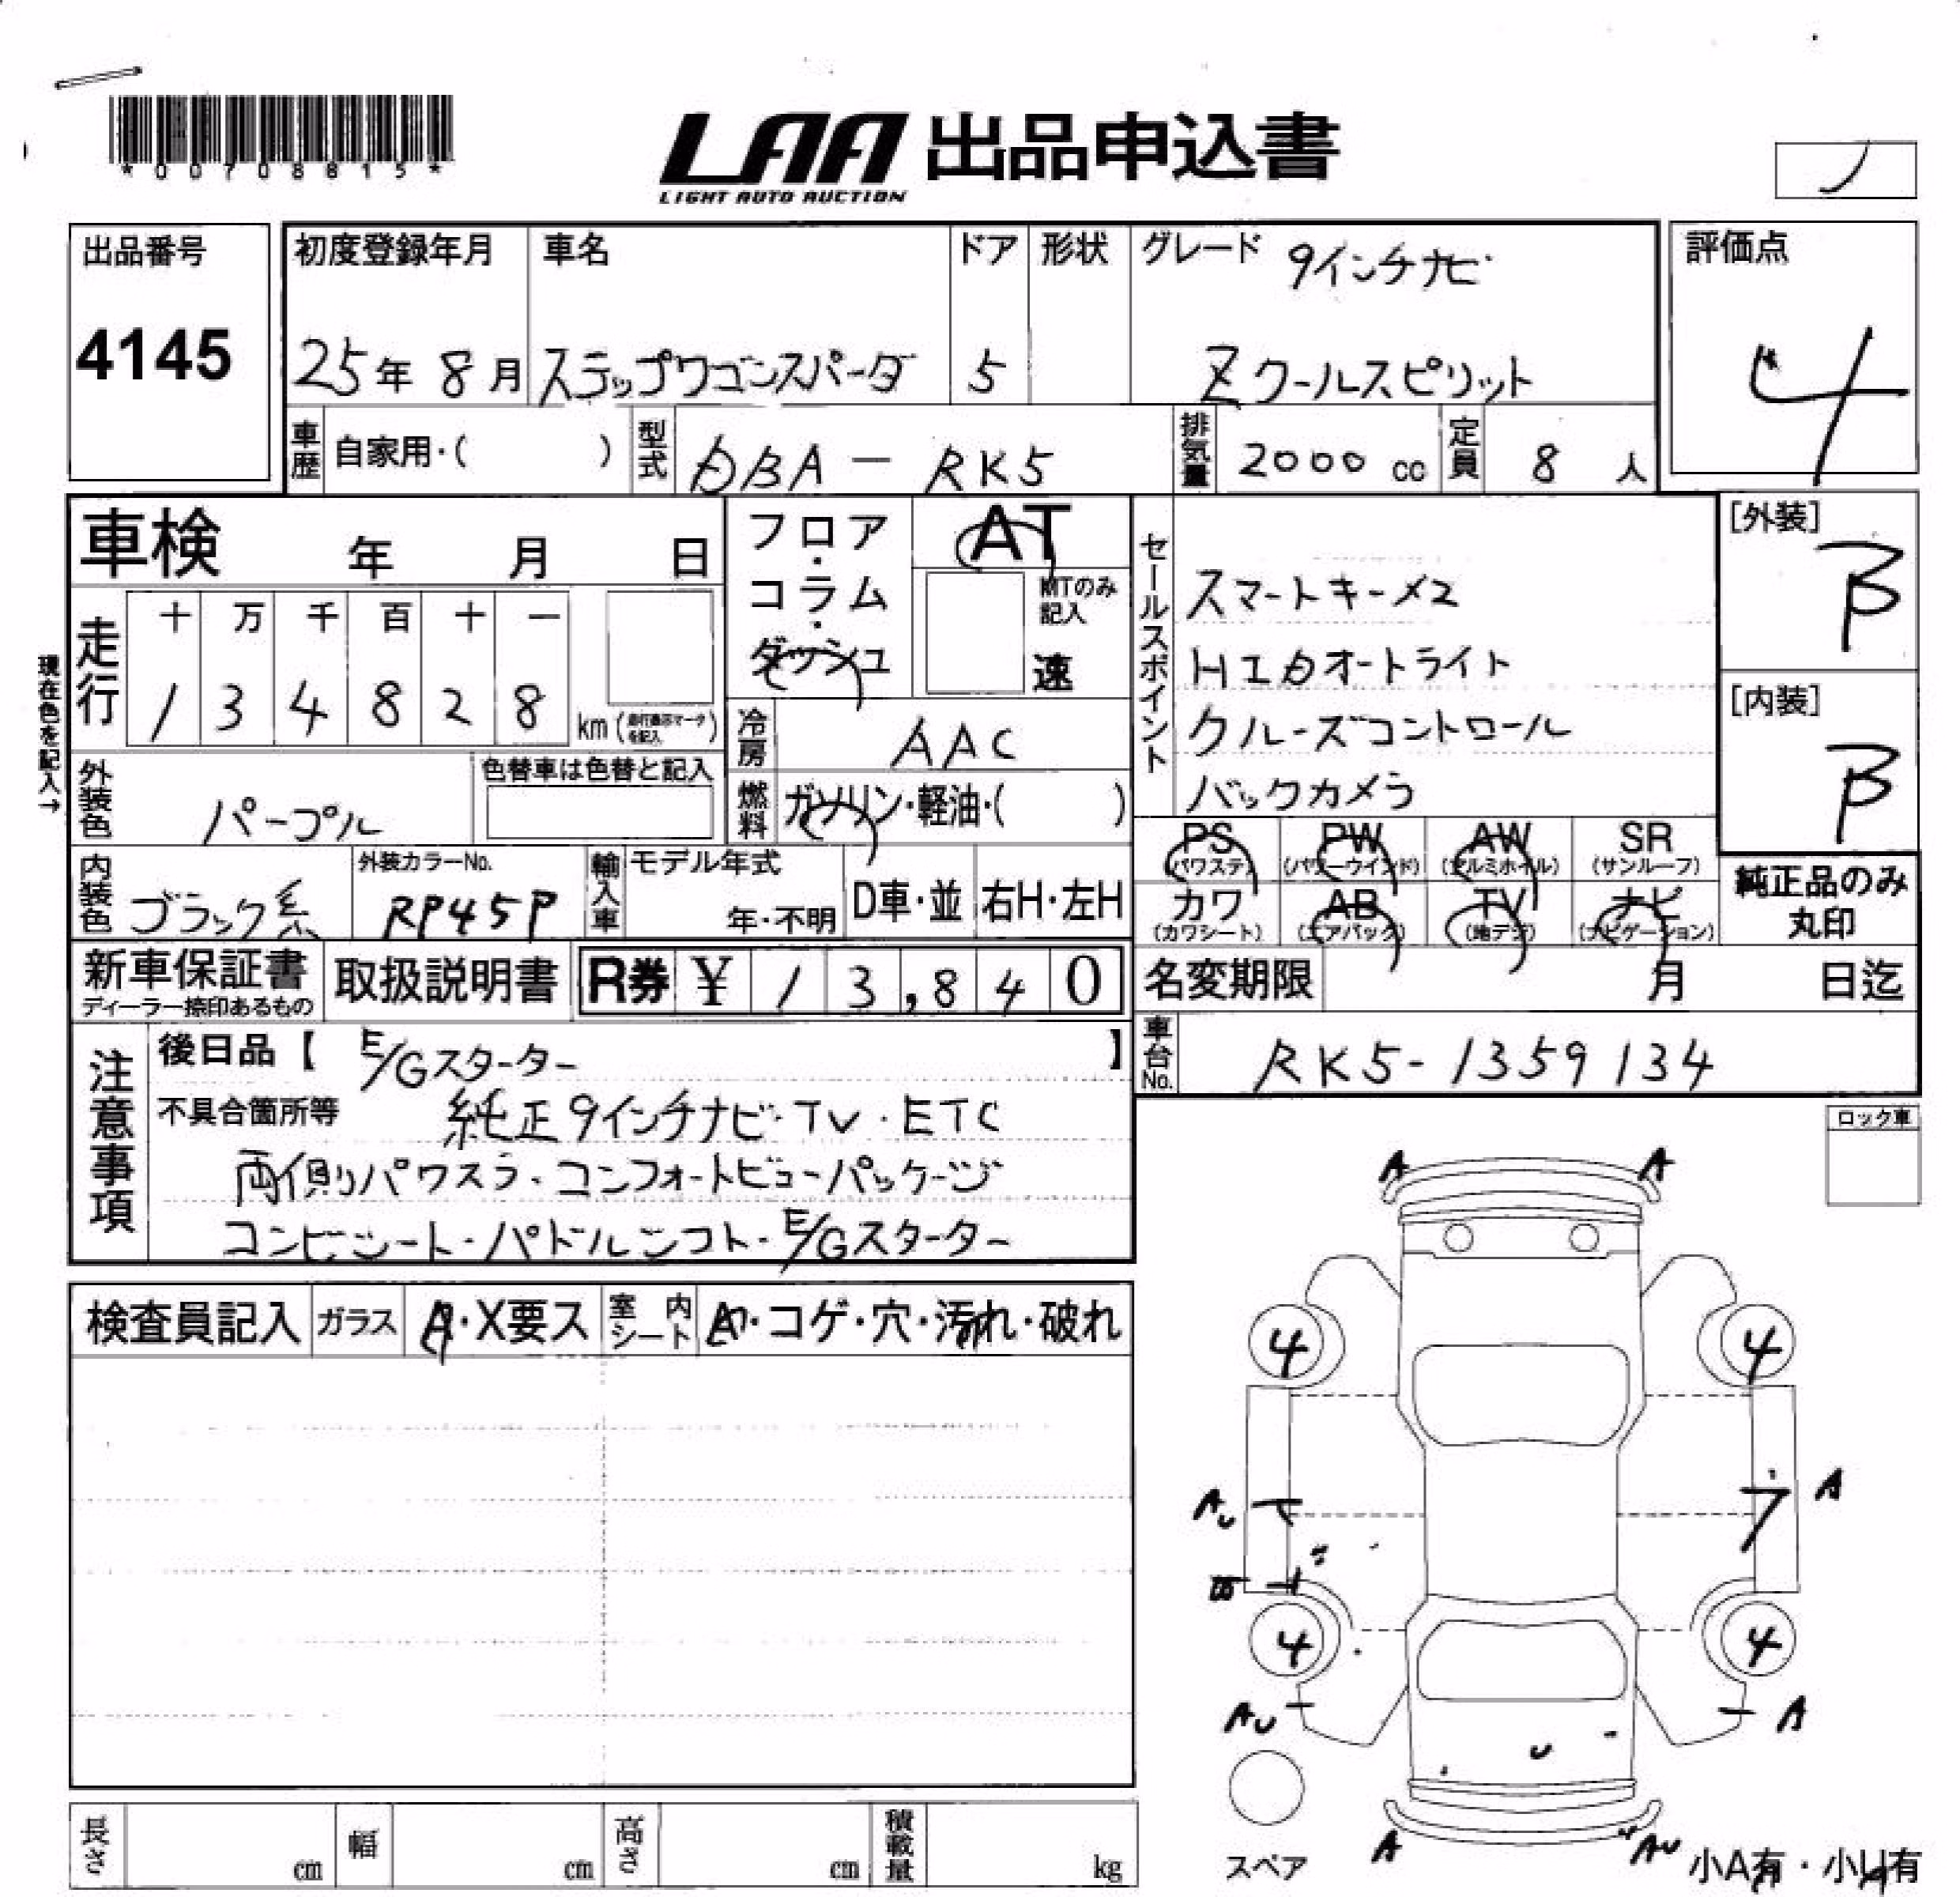 *00708815*
LAA 出品申込書
LIGHT AUTO AUCTION
出品番号
4145
初度登録年月
25年 8月
車名
ステップワゴンスパーダ
ドア
5
形状
グレード
9インチナビ
Z クールスピリット
評価点
4
車歴
自家用・( )
型式
DBA - RK5
排気量
2000 cc
定員
8 人
車検 年 月 日
フロア・コラム・ダッシュ
AT
MTのみ記入
速
現在色を記入→
走行
十 万 千 百 十 一
1 3 4 8 2 8
km (走行表示マークを記入)
冷房
AAC
燃料
ガソリン・軽油・( )
外装色
パープル
色替車は色替と記入
内装色
ブラック系
外装カラーNo.
RP45P
輸入車
モデル年式
年・不明
D車・並
右H・左H
セールスポイント
スマートキー×2
HIDオートライト
クルーズコントロール
バックカメラ
[外装]
B
[内装]
B
PS (パワステ)
PW (パワーウインド)
AW (アルミホイル)
SR (サンルーフ)
カワ (カワシート)
AB (エアバック)
TV (地デジ)
ナビ (ナビゲーション)
純正品のみ丸印
新車保証書
ディーラー捺印あるもの
取扱説明書
R券 ¥ 1 3,8 4 0
名変期限 月 日迄
車台No.
RK5-1359134
注意事項
後日品【 E/Gスターター 】
不具合箇所等 純正9インチナビ・TV・ETC
両側パワスラ・コンフォートビューパッケージ
コンビシート・パドルシフト・E/Gスターター
ロック車
検査員記入
ガラス
A・X要ス
室内シート
・コゲ・穴・汚れ・破れ
A A
4 4
AU A
4 4
AU A
U
A AU
スペア
小A有・小U有
長さ cm
幅 cm
高さ cm
積載量 kg